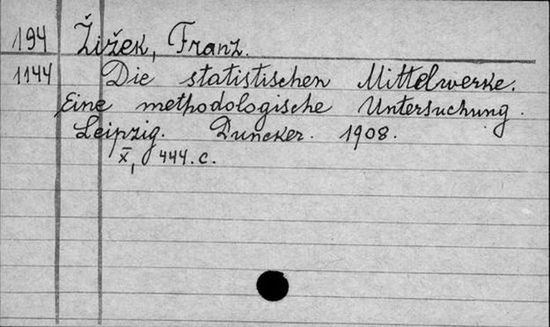 194 Žižek, Franz.
1144 Die statistischen Mittelwerke.
Eine methodologische Untersuchung.
Leipzig. Duncker. 1908.
X, 444. c.